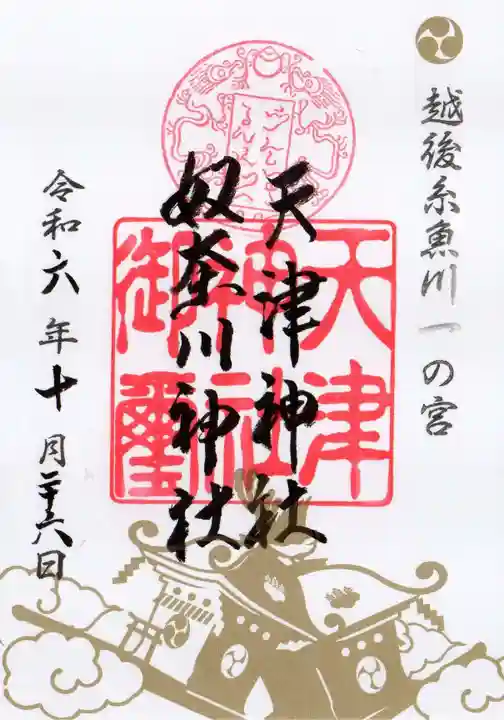 越後糸魚川一の宮
天津神社
奴奈川神社
天津
神社
御璽
令和六年十月二十六日